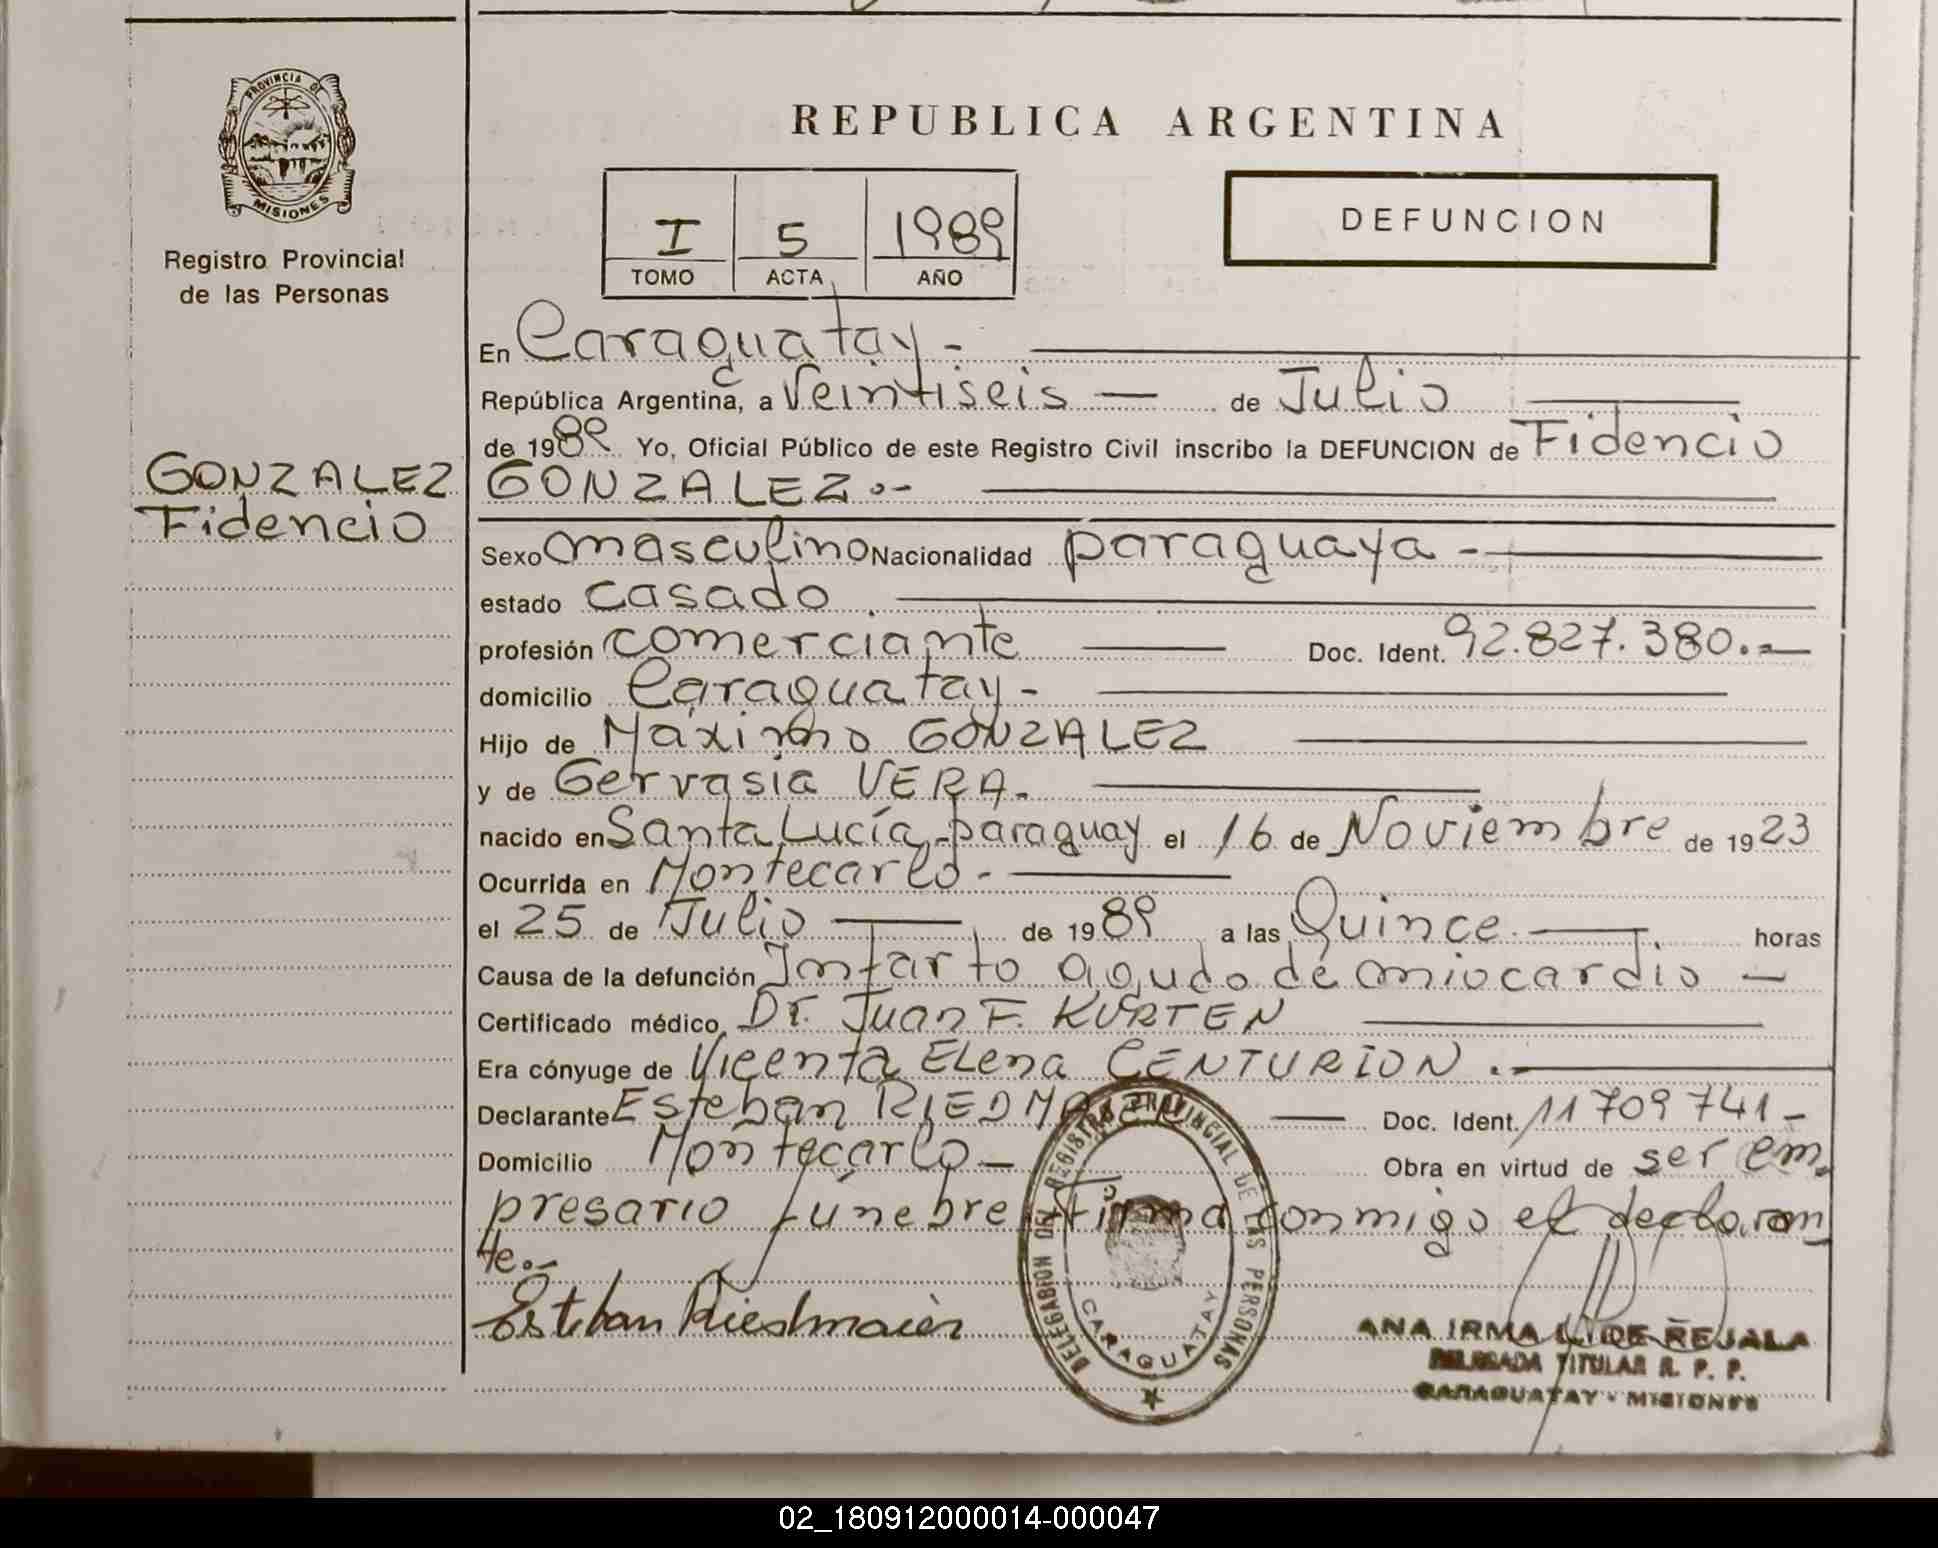 PROVINCIA DE
MISIONES
Registro Provincial
de las Personas
GONZALEZ
Fidencio
REPUBLICA ARGENTINA
I 5 1989
TOMO ACTA AÑO
DEFUNCION
En Caraguatay -
República Argentina, a Veintiseis — de Julio
de 1989 Yo, Oficial Público de este Registro Civil inscribo la DEFUNCION de Fidencio
GONZALEZ.-
Sexo masculino Nacionalidad paraguaya -
estado casado
profesión comerciante — Doc. Ident. 92.827.380.-
domicilio Caraguatay -
Hijo de Máximo GONZALEZ
y de Gervasia VERA.
nacido en Santa Lucía-paraguay el 16 de Noviembre de 1923
Ocurrida en Montecarlo.-
el 25 de Julio — de 1989 a las Quince.— horas
Causa de la defunción Infarto agudo de miocardio —
Certificado médico Dr. Juan F. KÜRTEN
Era cónyuge de Vicenta Elena CENTURION.-
Declarante Esteban RIEDMAIER — Doc. Ident. 11709741-
Domicilio Montecarlo — Obra en virtud de ser em-
presario fúnebre. Firma conmigo el declaran_
te.-
Esteban Riedmaier
DELEGACION DEL REGISTRO PROVINCIAL DE LAS PERSONAS
CARAGUATAY
ANA IRMA DE REJALA
DELEGADA TITULAR R. P. P.
CARAGUATAY - MISIONES
02_180912000014-000047